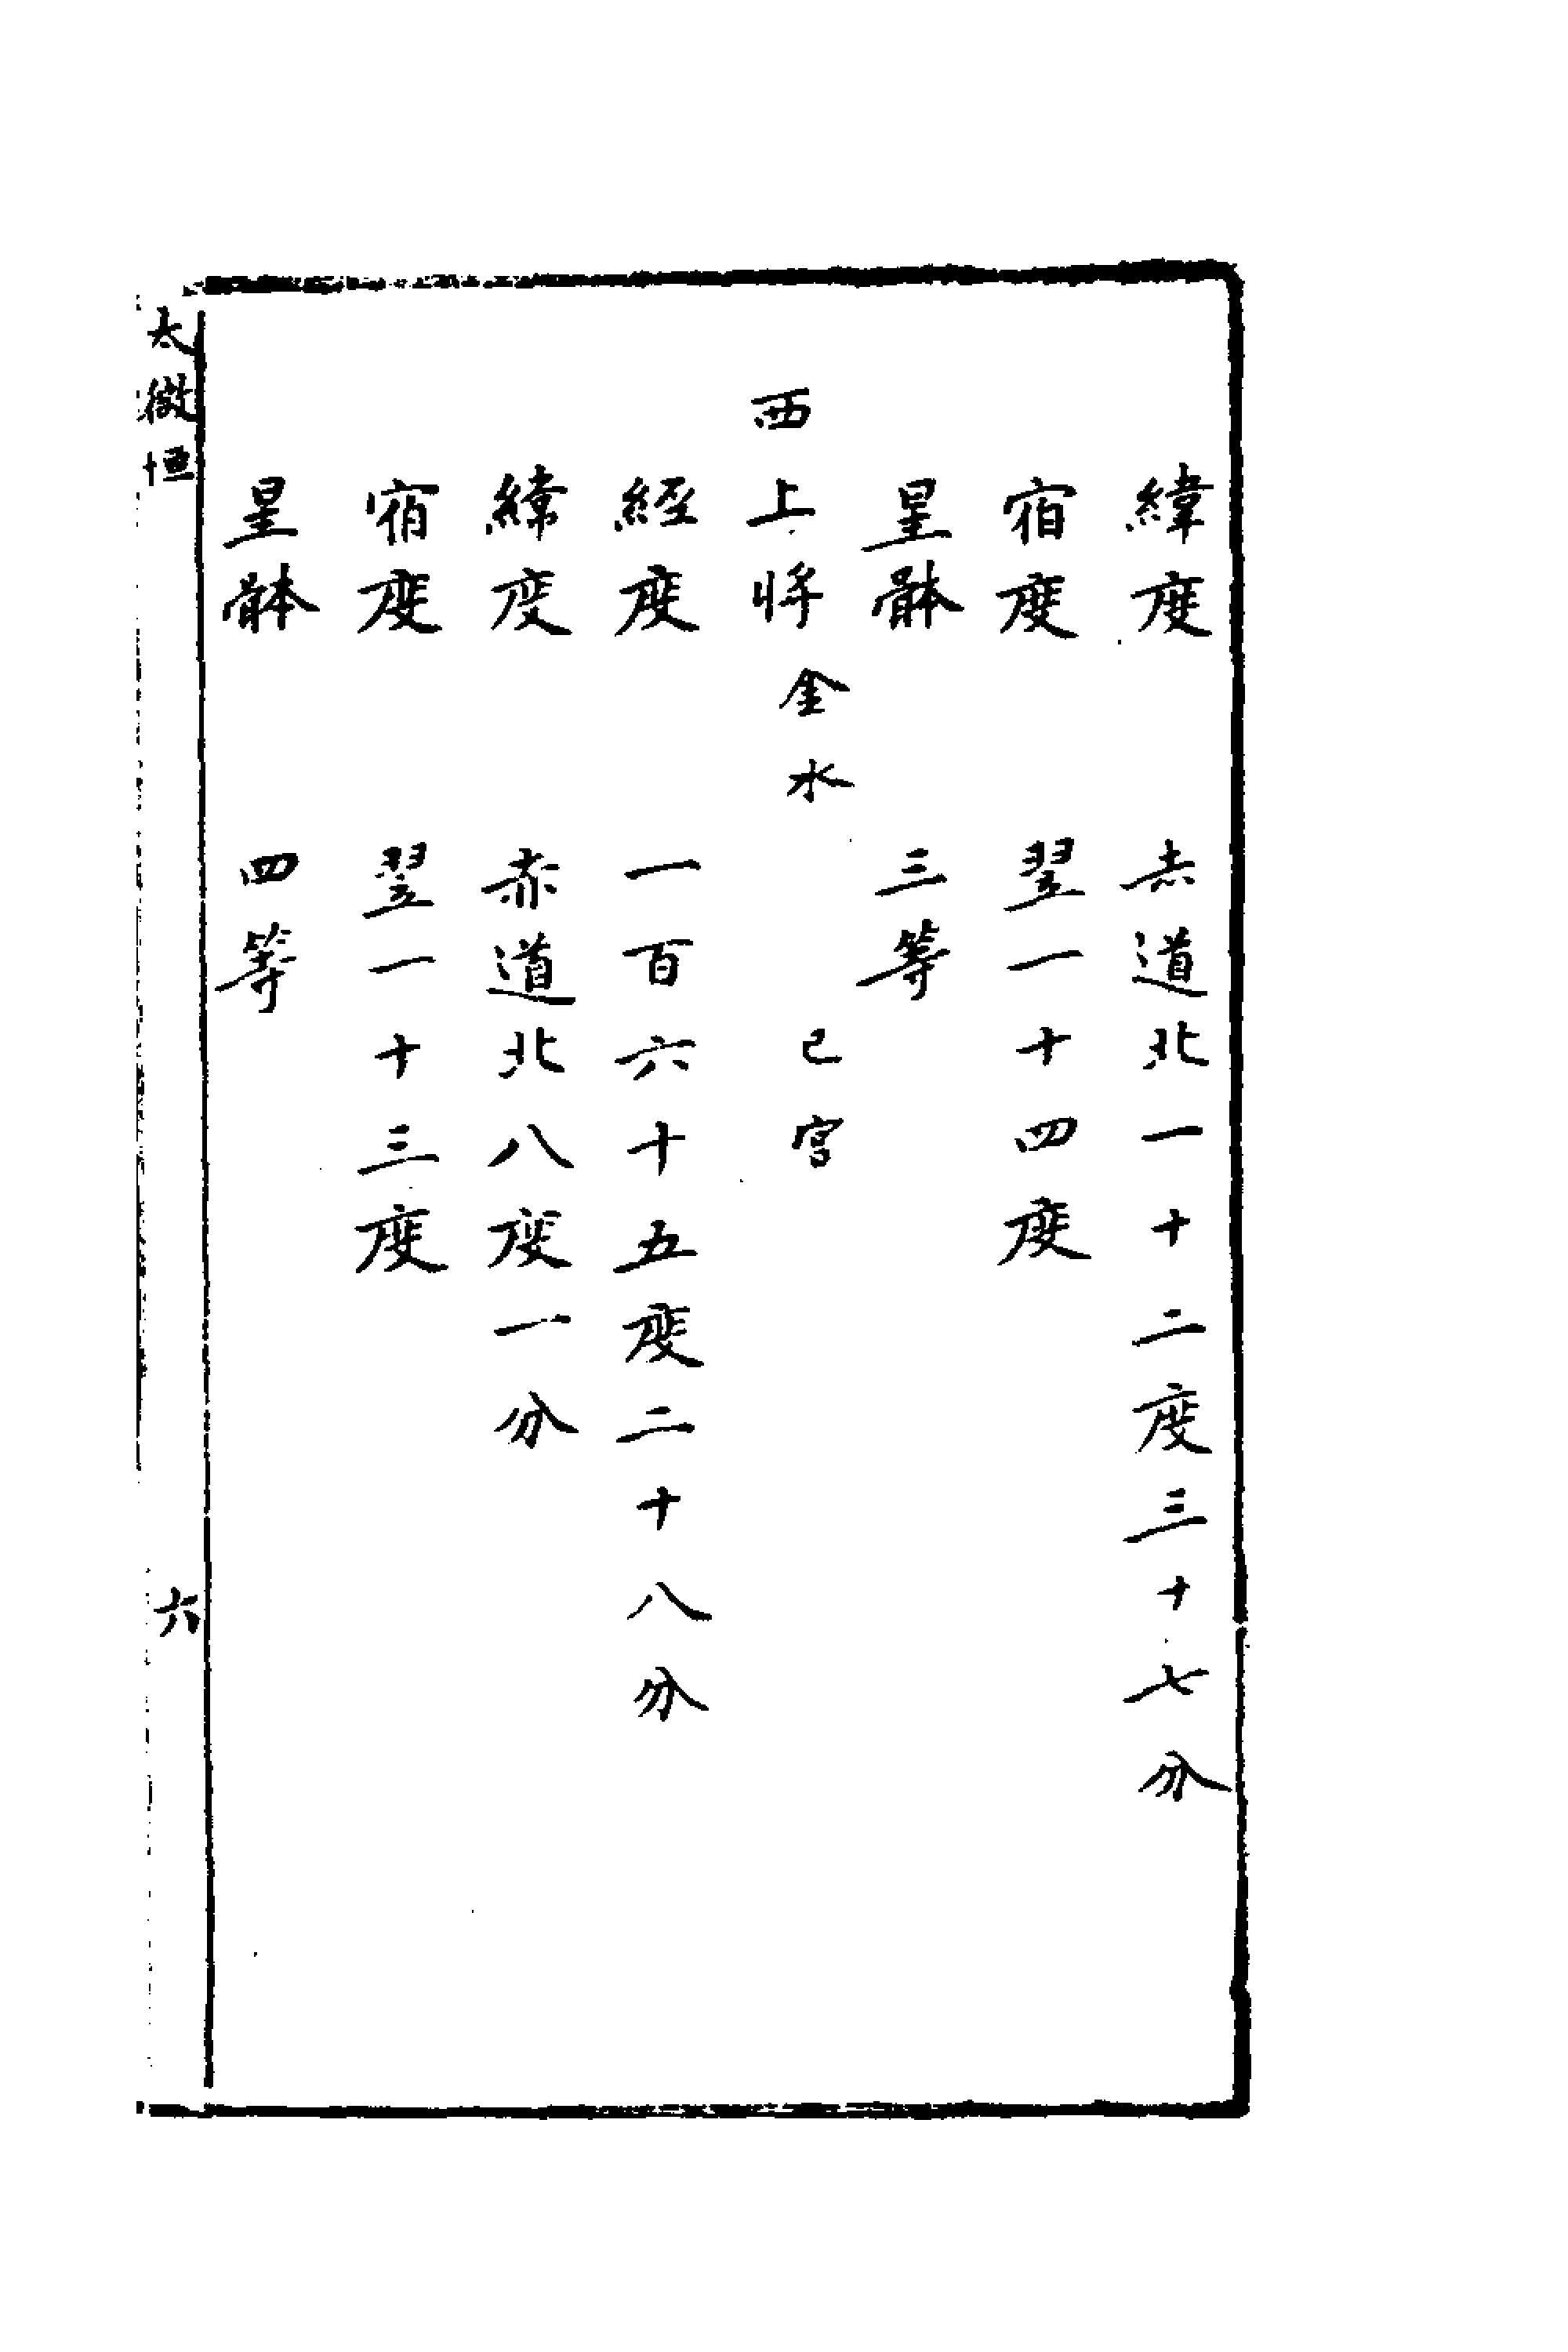 緯度 赤道北一十二度三十七分
宿度 翌一十四度
星骵 三等
西上將 金水 巳宮
経度 一百六十五度二十八分
緯度 赤道北八度一分
宿度 翌一十三度
星骵 四等
太微垣 六